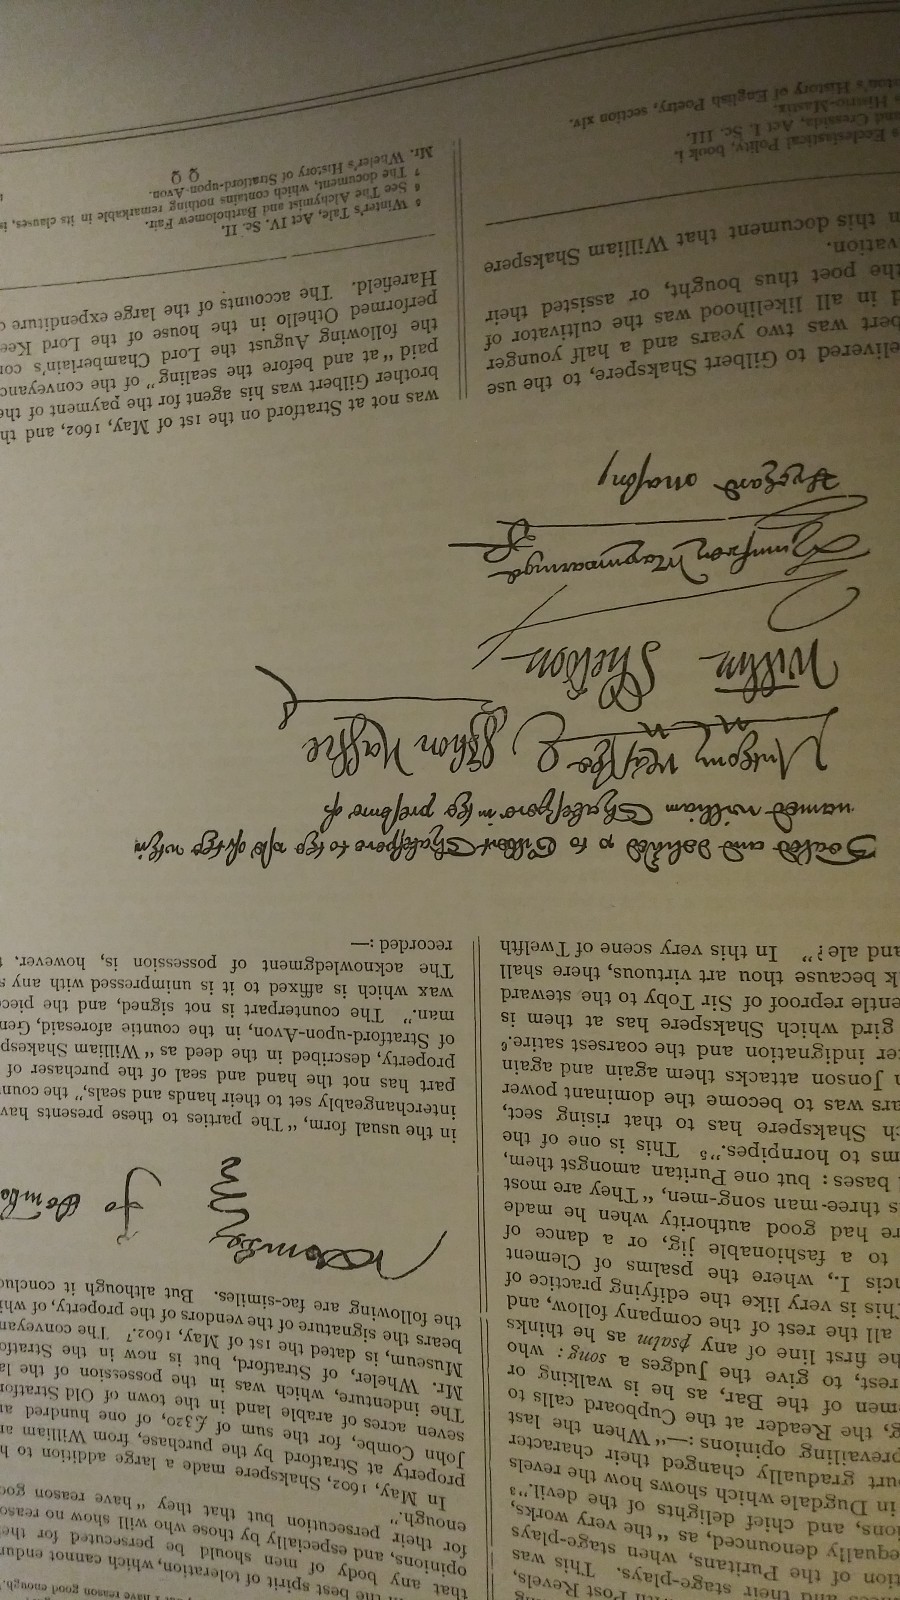 with Post Revels,
and their stage-plays. This was
tion of the Puritans, when stage-plays
equally denounced, as “the very works,
ions, and chief delights of the devil.”³
in Dugdale which shows how the revels
urt gradually changed their character
prevailing opinions:—“When the last
g, the Reader at the Cupboard calls to
men of the Bar, as he is walking or
rest, to give the Judges a song: who
he first line of any psalm as he thinks
all the rest of the company follow, and
This is very like the edifying practice of
ncis I., where the psalms of Clement
to a fashionable jig, or a dance of
re had good authority when he made
s three-man song-men, “They are most
bases: but one Puritan amongst them,
ms to hornpipes.”⁵ This is one of the
ch Shakspere has to that rising sect,
ars was to become the dominant power
n Jonson attacks them again and again
ter indignation and the coarsest satire.⁶
gird which Shakspere has at them is
entle reproof of Sir Toby to the steward
k because thou art virtuous, there shall
and ale?” In this very scene of Twelfth
have reason good enough.
the best spirit of toleration, which cannot endur
that any body of men should be persecuted for the
opinions, and especially by those who will show no reaso
for their persecution but that they “have reason goo
enough.”
In May, 1602, Shakspere made a large addition to h
property at Stratford by the purchase, from William an
John Combe, for the sum of £320, of one hundred an
seven acres of arable land in the town of Old Stratfor
The indenture, which was in the possession of the la
Mr. Wheler, of Stratford, but is now in the Stratfo
Museum, is dated the 1st of May, 1602.⁷ The conveyan
bears the signature of the vendors of the property, of wh
the following are fac-similes. But although it conclud
W Combe Jo Combe
in the usual form, “The parties to these presents hav
interchangeably set to their hands and seals,” the coun
part has not the hand and seal of the purchaser of
property, described in the deed as “William Shakesp
of Stratford-upon-Avon, in the countie aforesaid, Gen
man.” The counterpart is not signed, and the piec
wax which is affixed to it is unimpressed with any s
The acknowledgment of possession is, however, t
recorded:—
Sealed and delivered to Gilbert Shakespere to the use of the within
named William Shakespere in the presence of
Anthony Nasshe Jhon Nashe
Willm Sheldon
Humfrey Maynwaringe
Rychard Mason
elivered to Gilbert Shakspere, to the use
bert was two years and a half younger
d in all likelihood was the cultivator of
the poet thus bought, or assisted their
vation.
n this document that William Shakspere
was not at Stratford on the 1st of May, 1602, and th
brother Gilbert was his agent for the payment of the
paid “at and before the sealing” of the conveyanc
the following August the Lord Chamberlain's con
performed Othello in the house of the Lord Kee
Harefield. The accounts of the large expenditure o
Ecclesiastical Polity, book i.
and Cressida, Act I. Sc. III.
s Histrio-Mastix.
ton's History of English Poetry, section xlv.
⁵ Winter's Tale, Act IV. Sc. II.
⁶ See The Alchymist and Bartholomew Fair.
⁷ The document, which contains nothing remarkable in its clauses, is
Mr. Wheler's History of Stratford-upon-Avon.
Q Q